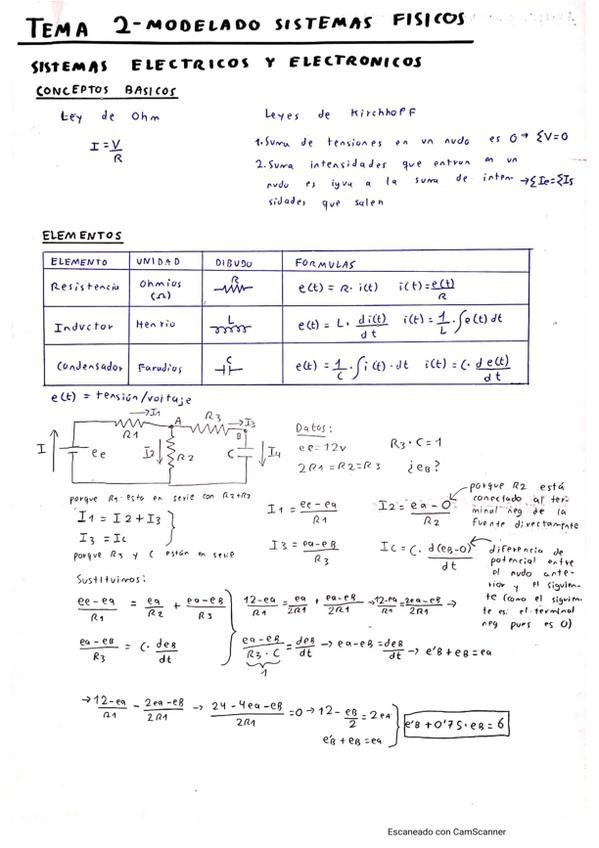 TEMA 2-MODELADO SISTEMAS FISICOS
SISTEMAS ELECTRICOS Y ELECTRONICOS
CONCEPTOS BASICOS
Ley de Ohm
I = V/R
Leyes de Kirchhoff
1. Suma de tensiones en un nudo es 0 → ΣV=0
2. Suma intensidades que entran en un
nudo es igua a la suma de inten- → ΣIe=ΣIs
sidades que salen
ELEMENTOS
ELEMENTO UNIDAD DIBUJO FORMULAS
Resistencia Ohmios (Ω) R e(t) = R · i(t) i(t) = e(t)/R
Inductor Henrio L e(t) = L · di(t)/dt i(t) = 1/L · ∫e(t) dt
Condensador Faradios C e(t) = 1/C · ∫i(t) · dt i(t) = C · de(t)/dt
e(t) = tensión/voltaje
I ee R1 → I1 A I2 R2 R3 → I3 B C I4
Datos:
ee = 12v R3 · C = 1
2R1 = R2 = R3 ¿eB?
porque R1 esto en serie con R2+R3
I1 = I2 + I3
I3 = Ic
porque R3 y C están en serie
I1 = ee - ea/R1
I2 = ea - 0/R2
I3 = ea - eB/R3
Ic = C · d(eB-0)/dt
porque R2 está
conectado al ter-
minal neg de la
fuente directamente
diferencia de
potencial entre
el nudo ante-
rior y el siguien-
te (como el siguien-
te es el terminal
neg pues es 0)
Sustituimos:
ee-ea/R1 = ea/R2 + ea-eB/R3
ea-eB/R3 = C · deB/dt
12-ea/R1 = ea/2R1 + ea-eB/2R1 → 12-ea/R1 = 2ea-eB/2R1 →
ea-eB/R3·C = deB/dt → ea-eB = deB/dt → e'B + eB = ea
1
→ 12-ea/R1 - 2ea-eB/2R1 → 24-4ea-eB/2R1 = 0 → 12 - eB/2 = 2eA
e'B + eB = ea
e'B + 0'75 · eB = 6
Escaneado con CamScanner